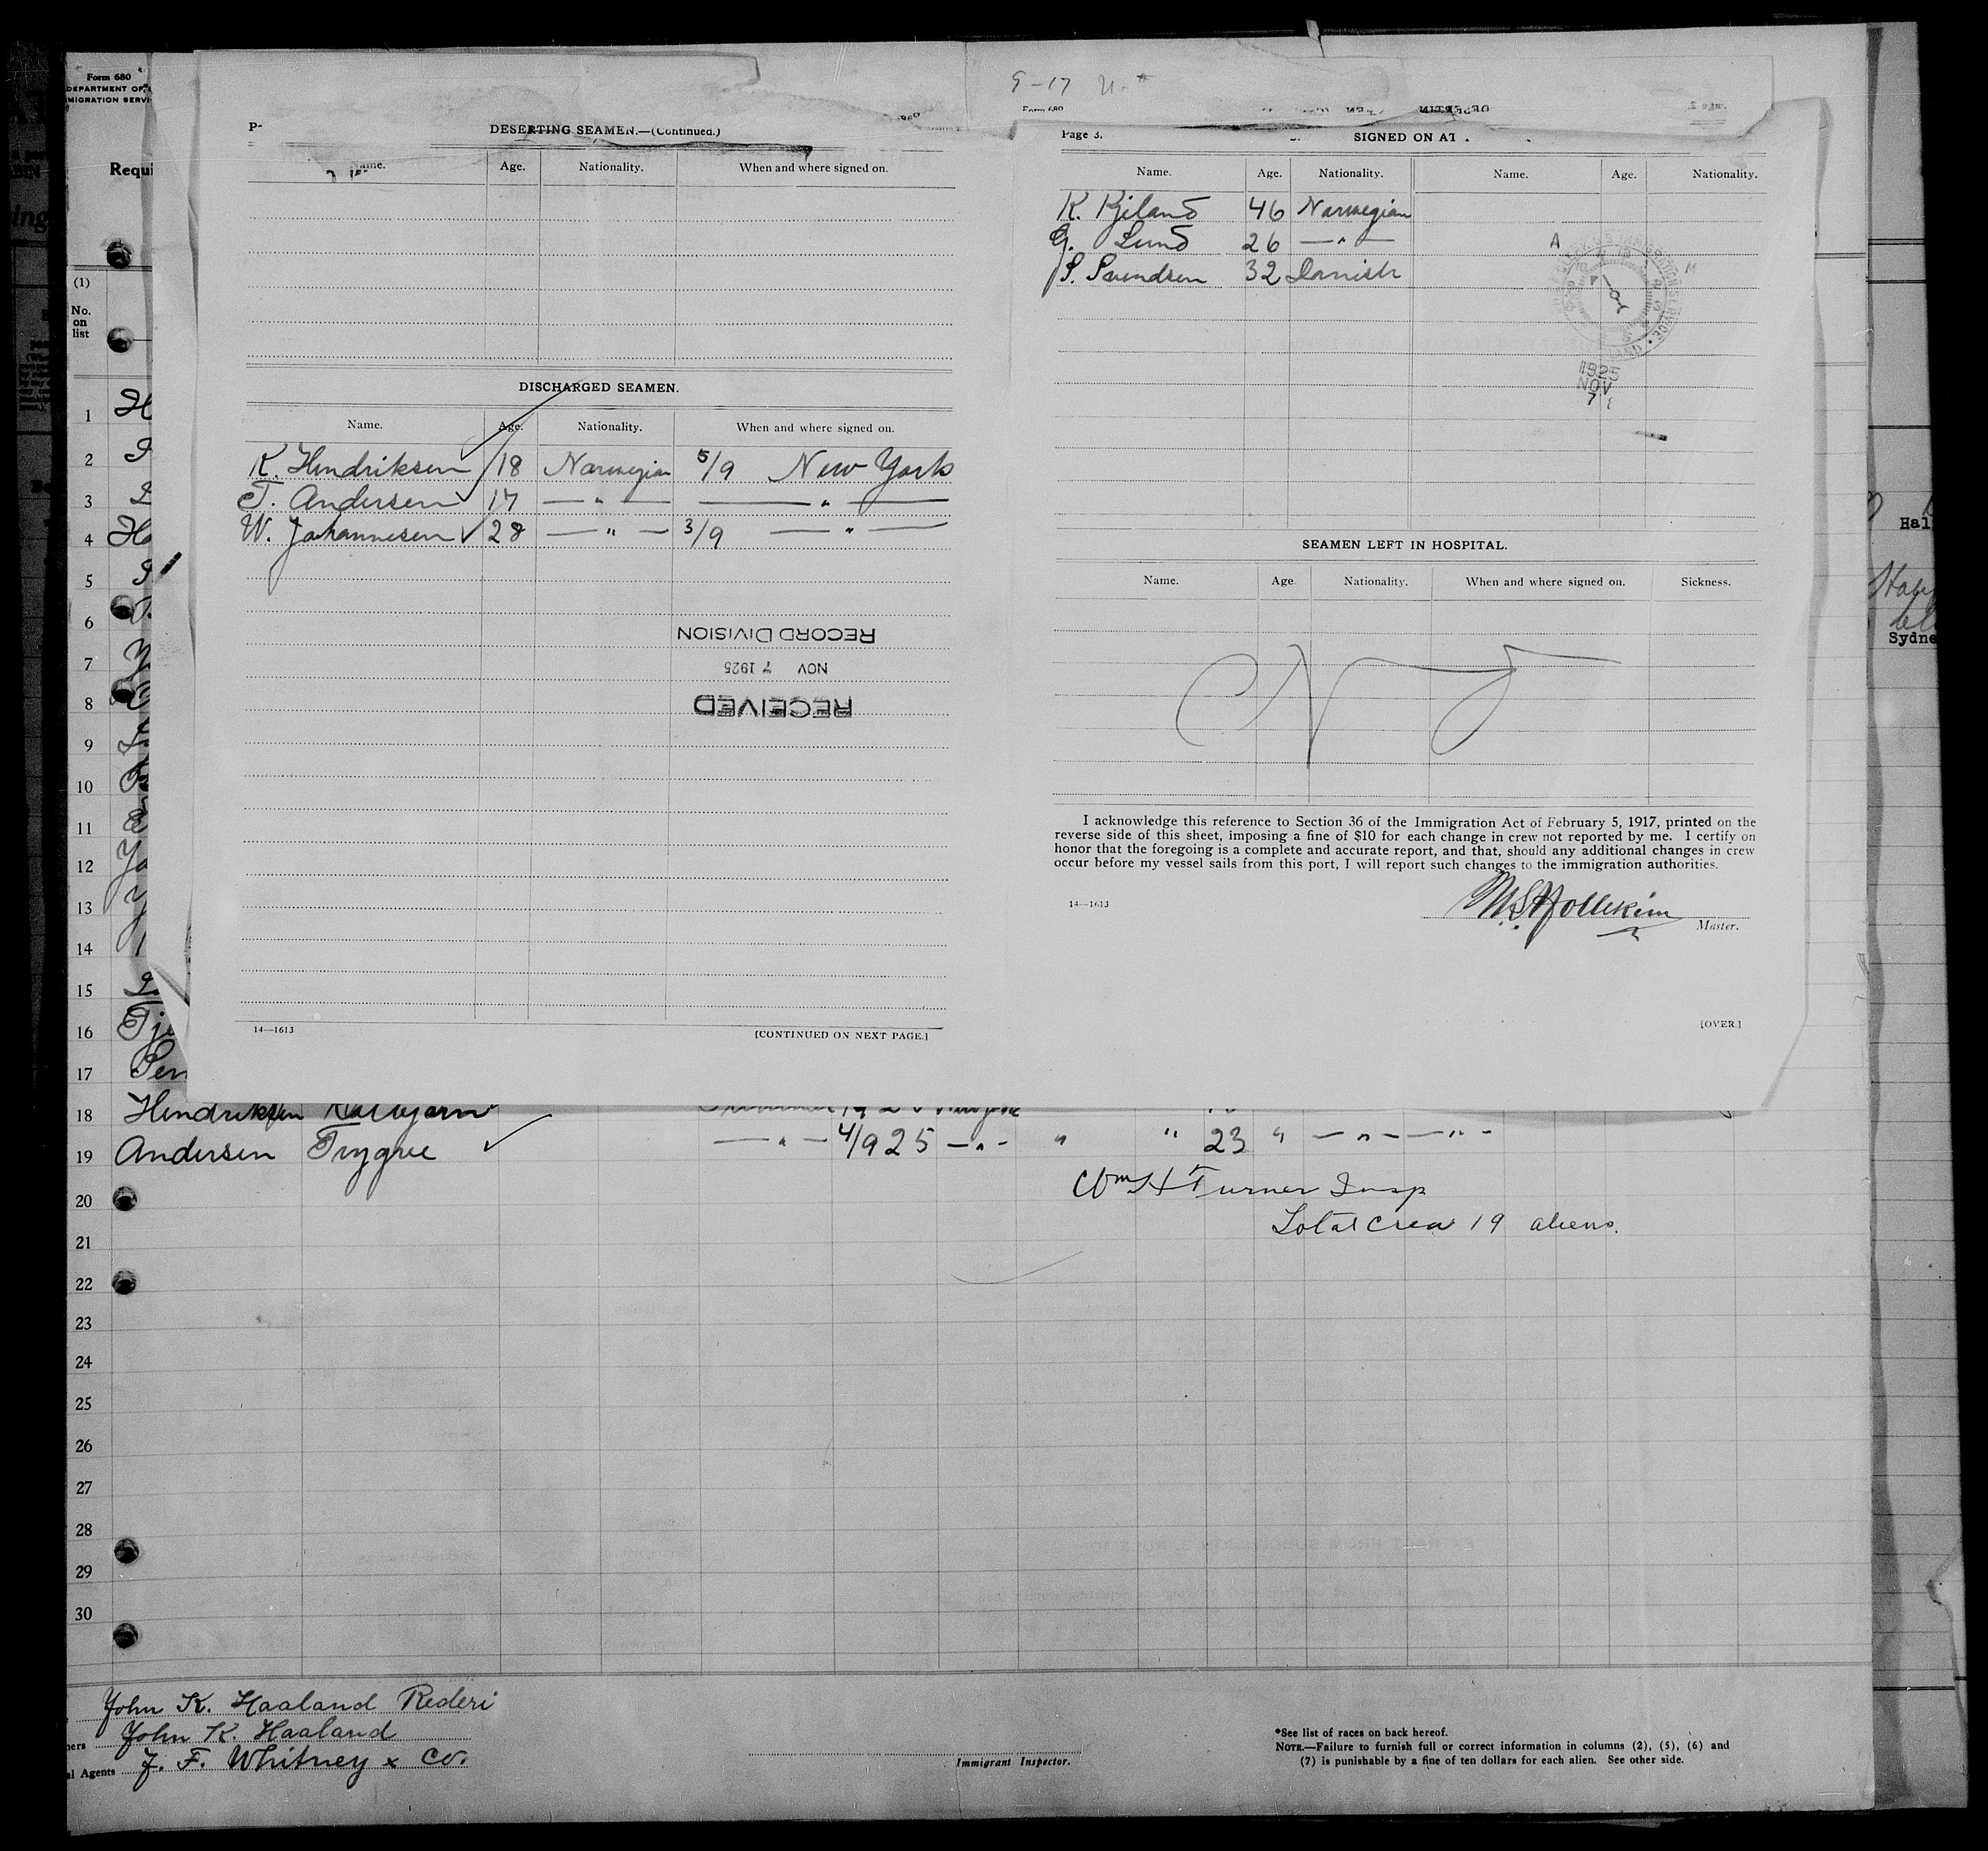 Form 680
DEPARTMENT OF
MIGRATION SERVI
Requi
(1)
No.
on
list
1
2
3
4
5
6
7
8
9
10
11
12
13
14
15
16
17
18
19
20
21
22
23
24
25
26
27
28
29
30
DESERTING SEAMEN.—(Continued.)
Name. Age. Nationality. When and where signed on.
DISCHARGED SEAMEN.
Name. Age. Nationality. When and where signed on.
K. Hendriksen 18 Norwegian 5/9 New York
T. Andersen 17 — " — — " —
W. Johannesen 28 — " — 3/9 — " —
RECORD DIVISION
NOV 7 1925
RECEIVED
14—1613
[CONTINUED ON NEXT PAGE.]
9-17
Form 680
Page 3.
SIGNED ON AT
Name. Age. Nationality. Name. Age. Nationality.
K. Kjeland 46 Norwegian
G. Lund 26 — " —
S. Svendsen 32 Danish
A M
1925
NOV
7
SEAMEN LEFT IN HOSPITAL.
Name. Age. Nationality. When and where signed on. Sickness.
I acknowledge this reference to Section 36 of the Immigration Act of February 5, 1917, printed on the
reverse side of this sheet, imposing a fine of $10 for each change in crew not reported by me. I certify on
honor that the foregoing is a complete and accurate report, and that, should any additional changes in crew
occur before my vessel sails from this port, I will report such changes to the immigration authorities.
14—1613
M. S. Hollekim
Master.
[OVER.]
Hal
Sydne
Hendriksen
Andersen Trygve — " — 4/9 25 — " — " " 23 " — " — — " —
Wm H Turner Insp
Total Crew 19 aliens.
John K. Haaland Rederi
ners John K. Haaland
al Agents J. F. Whitney & Co.
Immigrant Inspector.
*See list of races on back hereof.
NOTE.—Failure to furnish full or correct information in columns (2), (5), (6) and
(7) is punishable by a fine of ten dollars for each alien. See other side.